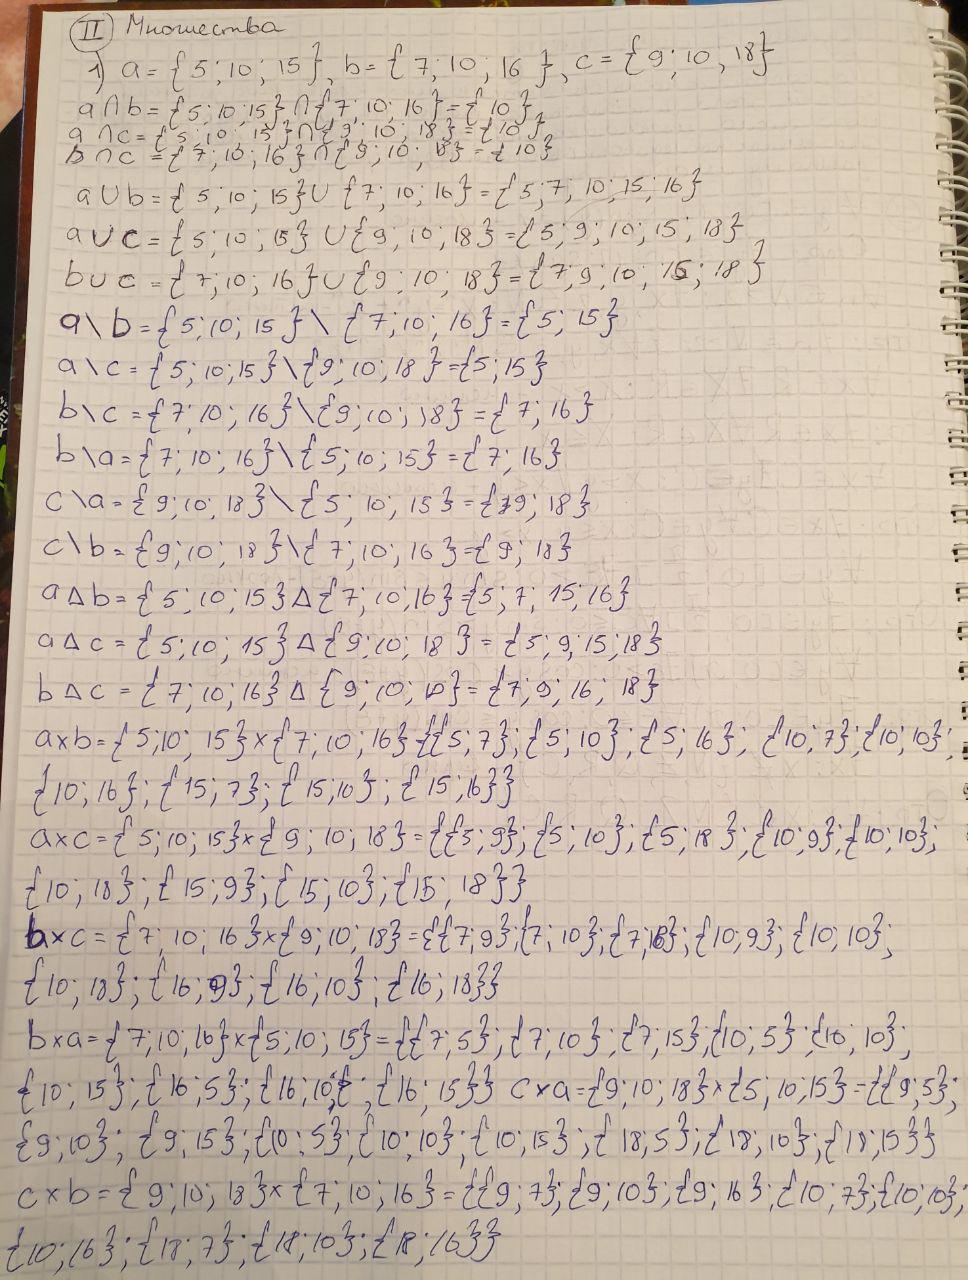 II Множества
1) a = {5; 10; 15}, b = {7; 10; 16}, c = {9; 10, 18}
a∩b = {5; 10; 15}∩{7; 10; 16} = {10}
a∩c = {5; 10; 15}∩{9; 10; 18} = {10}
b∩c = {7; 10; 16}∩{9; 10; 18} = {10}
a∪b = {5; 10; 15}∪{7; 10; 16} = {5; 7; 10; 15; 16}
a∪c = {5; 10; 15}∪{9; 10; 18} = {5; 9; 10; 15; 18}
b∪c = {7; 10; 16}∪{9; 10; 18} = {7; 9; 10; 16; 18}
a\b = {5; 10; 15}\{7; 10; 16} = {5; 15}
a\c = {5; 10; 15}\{9; 10; 18} = {5; 15}
b\c = {7; 10; 16}\{9; 10; 18} = {7; 16}
b\a = {7; 10; 16}\{5; 10; 15} = {7; 16}
c\a = {9; 10; 18}\{5; 10; 15} = {9; 18}
c\b = {9; 10; 18}\{7; 10; 16} = {9; 18}
a∆b = {5; 10; 15}∆{7; 10; 16} = {5; 7; 15; 16}
a∆c = {5; 10; 15}∆{9; 10; 18} = {5; 9; 15; 18}
b∆c = {7; 10; 16}∆{9; 10; 18} = {7; 9; 16; 18}
a×b = {5; 10; 15}×{7; 10; 16} = {{5; 7}; {5; 10}; {5; 16}; {10; 7}; {10; 10};
{10; 16}; {15; 7}; {15; 10}; {15; 16}}
a×c = {5; 10; 15}×{9; 10; 18} = {{5; 9}; {5; 10}; {5; 18}; {10; 9}; {10; 10};
{10; 18}; {15; 9}; {15; 10}; {15; 18}}
b×c = {7; 10; 16}×{9; 10; 18} = {{7; 9}; {7; 10}; {7; 18}; {10; 9}; {10; 10};
{10; 18}; {16; 9}; {16; 10}; {16; 18}}
b×a = {7; 10; 16}×{5; 10; 15} = {{7; 5}; {7; 10}; {7; 15}; {10; 5}; {10; 10};
{10; 15}; {16; 5}; {16; 10}; {16; 15}} c×a = {9; 10; 18}×{5; 10; 15} = {{9; 5};
{9; 10}; {9; 15}; {10; 5}; {10; 10}; {10; 15}; {18; 5}; {18; 10}; {18; 15}}
c×b = {9; 10; 18}×{7; 10; 16} = {{9; 7}; {9; 10}; {9; 16}; {10; 7}; {10; 10};
{10; 16}; {18; 7}; {18; 10}; {18; 16}}